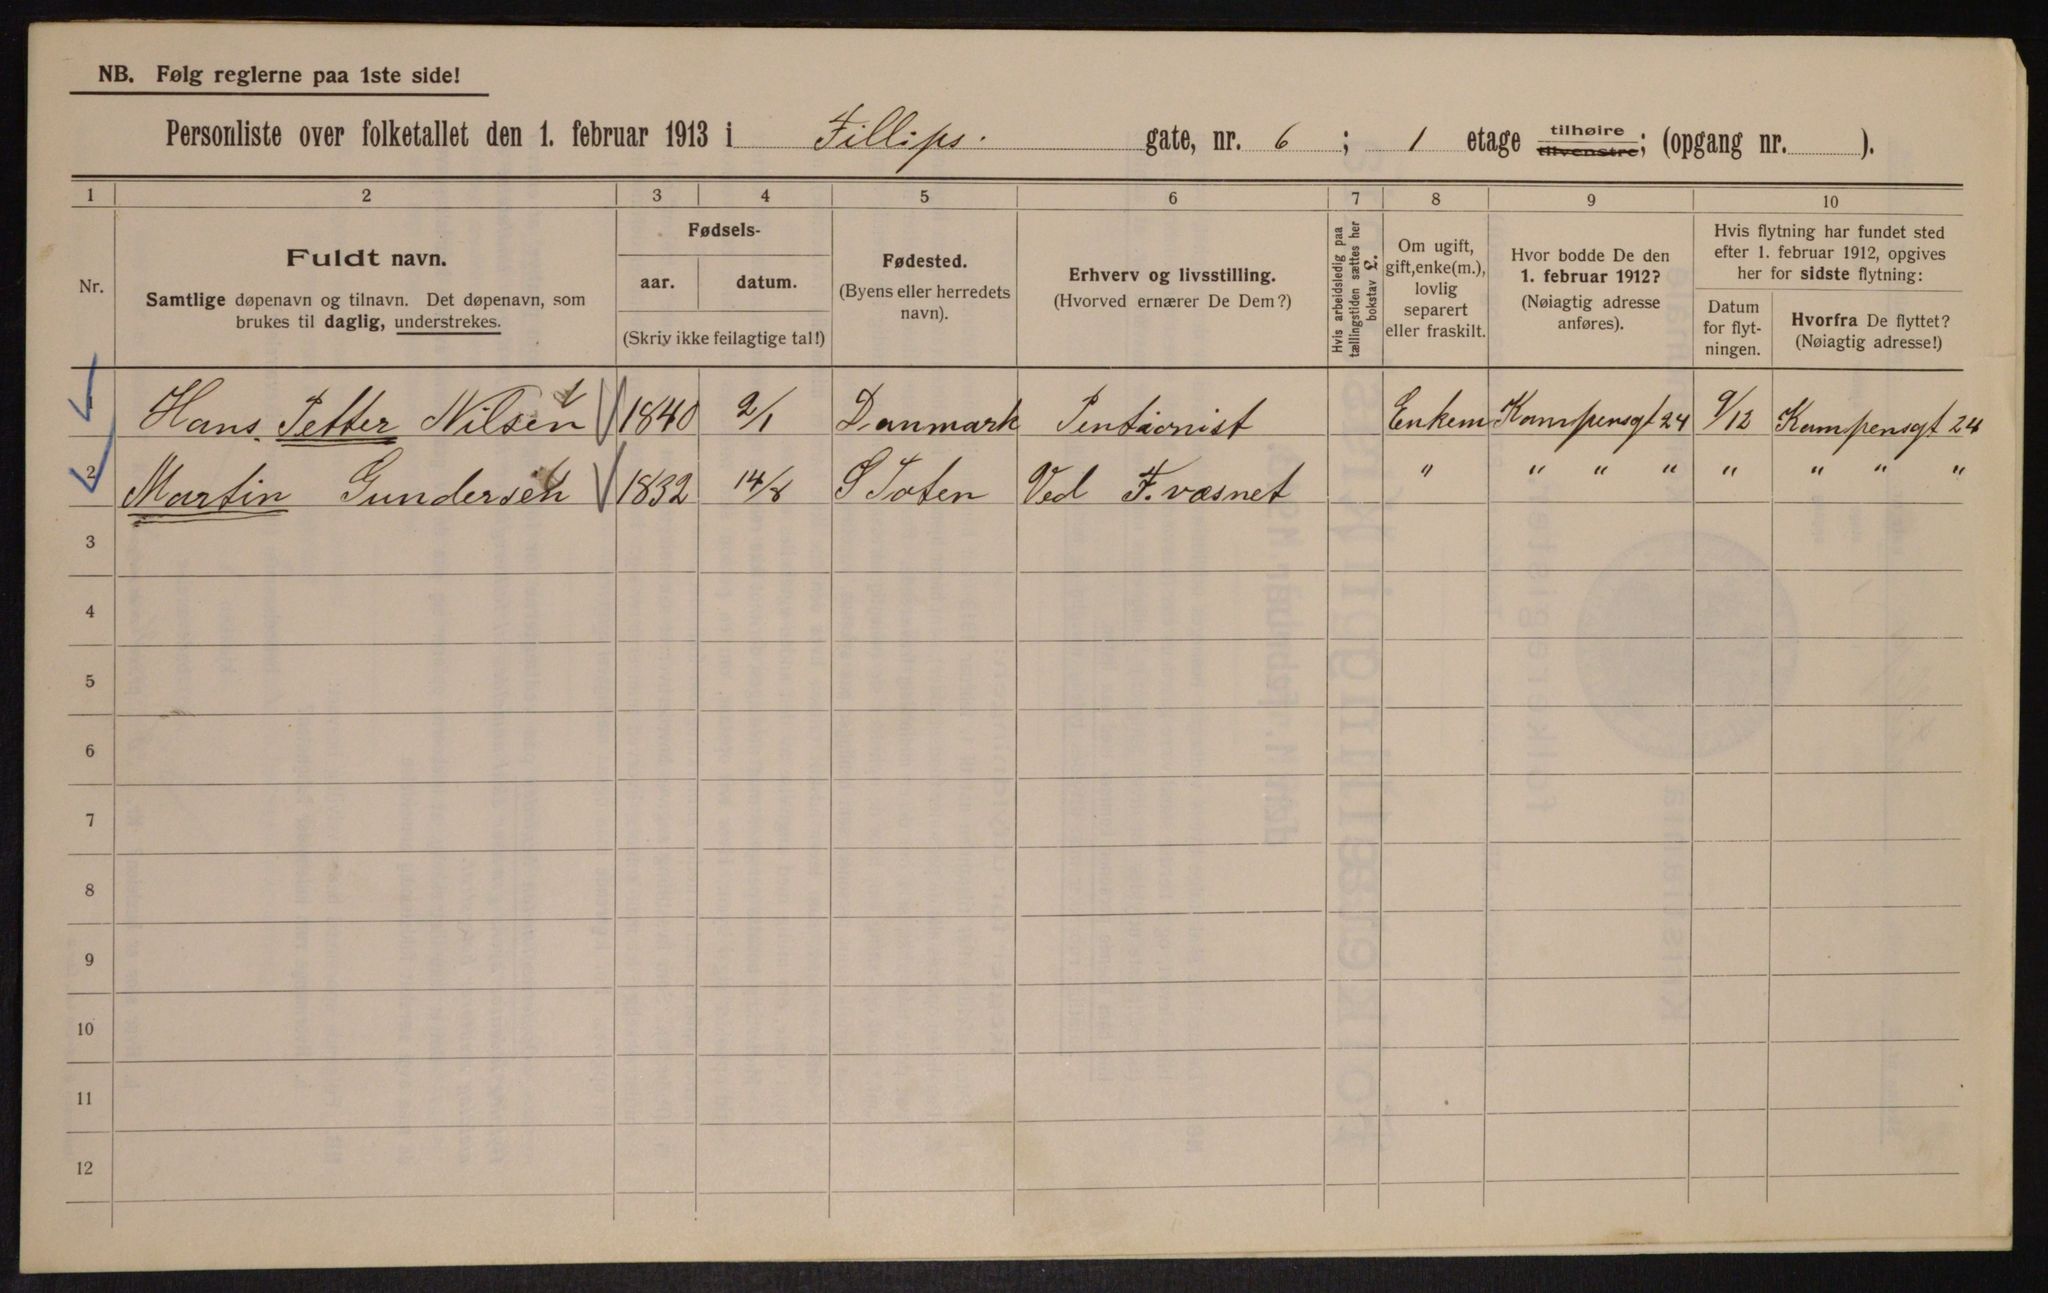 NB. Følg reglerne paa 1ste side!
Personliste over folketallet den 1. februar 1913 i Fillips. gate, nr. 6 ; 1 etage tilhøire tilvenstre; (opgang nr. ).
1 2 3 4 5 6 7 8 9 10
Nr.
Fuldt navn.
Samtlige døpenavn og tilnavn. Det døpenavn, som
brukes til daglig, understrekes.
Fødsels-
aar. datum.
(Skriv ikke feilagtige tal!)
Fødested.
(Byens eller herredets
navn).
Erhverv og livsstilling.
(Hvorved ernærer De Dem?)
Hvis arbeidsledig paa
tællingstiden sættes her
bokstav L.
Om ugift,
gift, enke(m.),
lovlig
separert
eller fraskilt.
Hvor bodde De den
1. februar 1912?
(Nøiagtig adresse
anføres).
Hvis flytning har fundet sted
efter 1. februar 1912, opgives
her for sidste flytning:
Datum
for flyt-
ningen.
Hvorfra De flyttet?
(Nøiagtig adresse!)
Hans Petter Nilsen 1840 2/1 Danmark Pentionist Enkem Kampensgt 24 9/12 Kampensgt 24
2 Martin Gundersen 1832 14/8 S Toten Ved F.væsnet " " " " " " " "
3
4
5
6
7
8
9
10
11
12